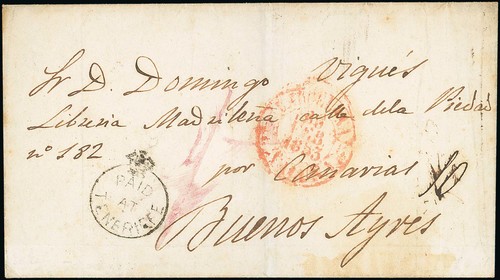 Sr D. Domingo Vigués
Libreria Madrileña calle dela Piedad
nº 182
por Canarias
Buenos Ayres
PAID
AT
TENERIFFE